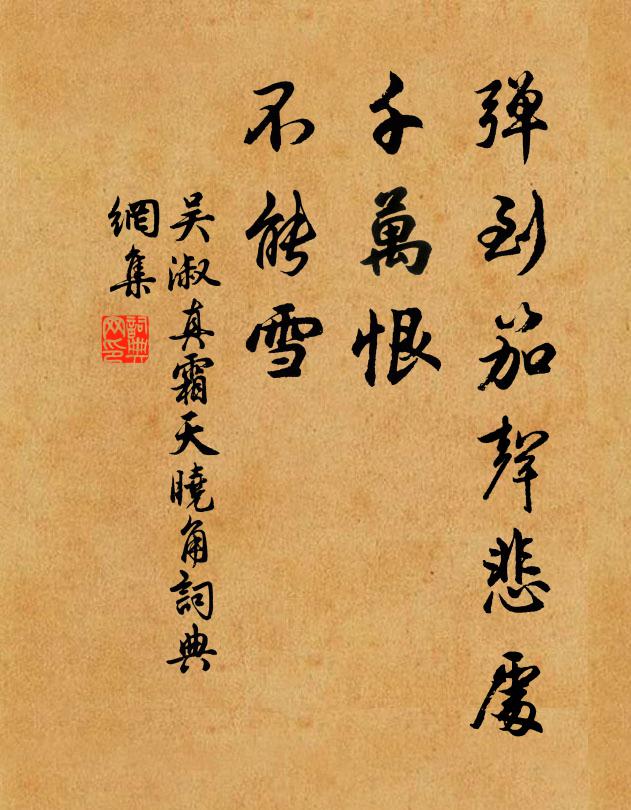 彈到笳聲悲處
千萬恨
不能雪
吳淑真霜天曉角詞典
網集
詞典
网印